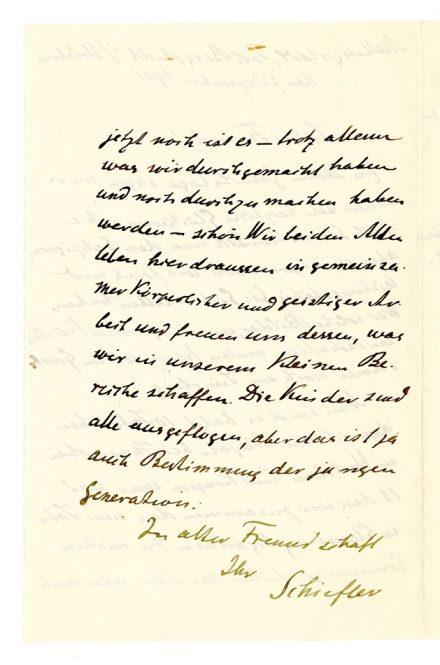 jetzt noch ist es – trotz allem
was wir durchgemacht haben
und noch durchzumachen haben
werden – schön. Wir beiden Alten
leben hier draussen in gemeinsa-
mer körperlicher und geistiger Ar-
beit und freuen uns dessen, was
wir in unserem kleinen Be-
reiche schaffen. Die Kinder sind
alle ausgeflogen, aber das ist ja
auch Bestimmung der jungen
Generation.
In alter Freundschaft
Ihr
Schiefler